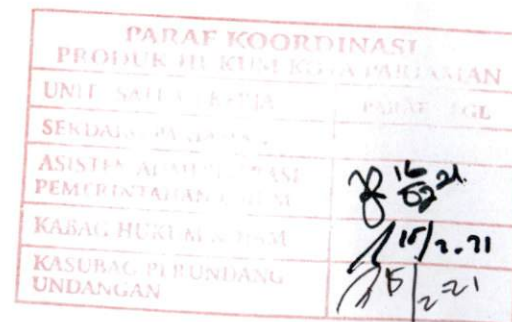 PARAF KOORDINASI
PRODUK HUKUM KOTA PARIAMAN
UNIT SATUAN KERJA PARAF TGL
SEKDAKO PARIAMAN
ASISTEN ADMINISTRASI
PEMERINTAHAN UMUM 16 02 21
KABAG HUKUM & HAM 15/2.21
KASUBAG PERUNDANG
UNDANGAN 15/2-21